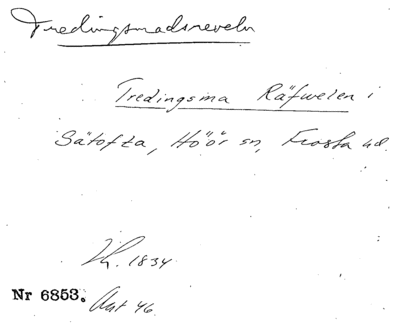 Tredingsmadsreveln
Tredingsma Räfwelen i
Sätofta, Höör sn, Frosta hd.
Lk. 1834
Nr 6853. Akt 46